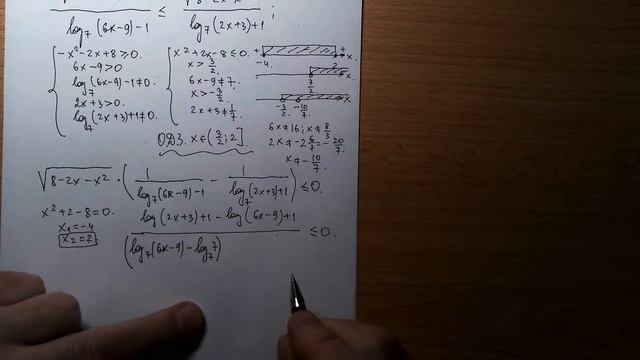 log₇(6x-9)-1 ≤ log₇(2x+3)+1 ;
{ -x²-2x+8≥0. { x²+2x-8≤0.
6x-9>0 x>3/2.
log₇(6x-9)-1≠0. 6x-9≠7.
2x+3>0. x>-3/2.
log₇(2x+3)+1≠0. 2x+3≠1/7.
-4. 2 x.
3/2 x
-3/2 -10/7 x
6x≠16; x≠8/3
2x≠-2 6/7=-20/7
x≠-10/7.
О.Д.З. x∈(3/2; 2].
√(8-2x-x²) · (1/(log₇(6x-9)-1) - 1/(log₇(2x+3)+1)) ≤0.
x²+2-8=0.
x₁=-4
x₂=2
(log₇(2x+3)+1-log₇(6x-9)+1)/((log₇(6x-9)-log₇7) ≤0.